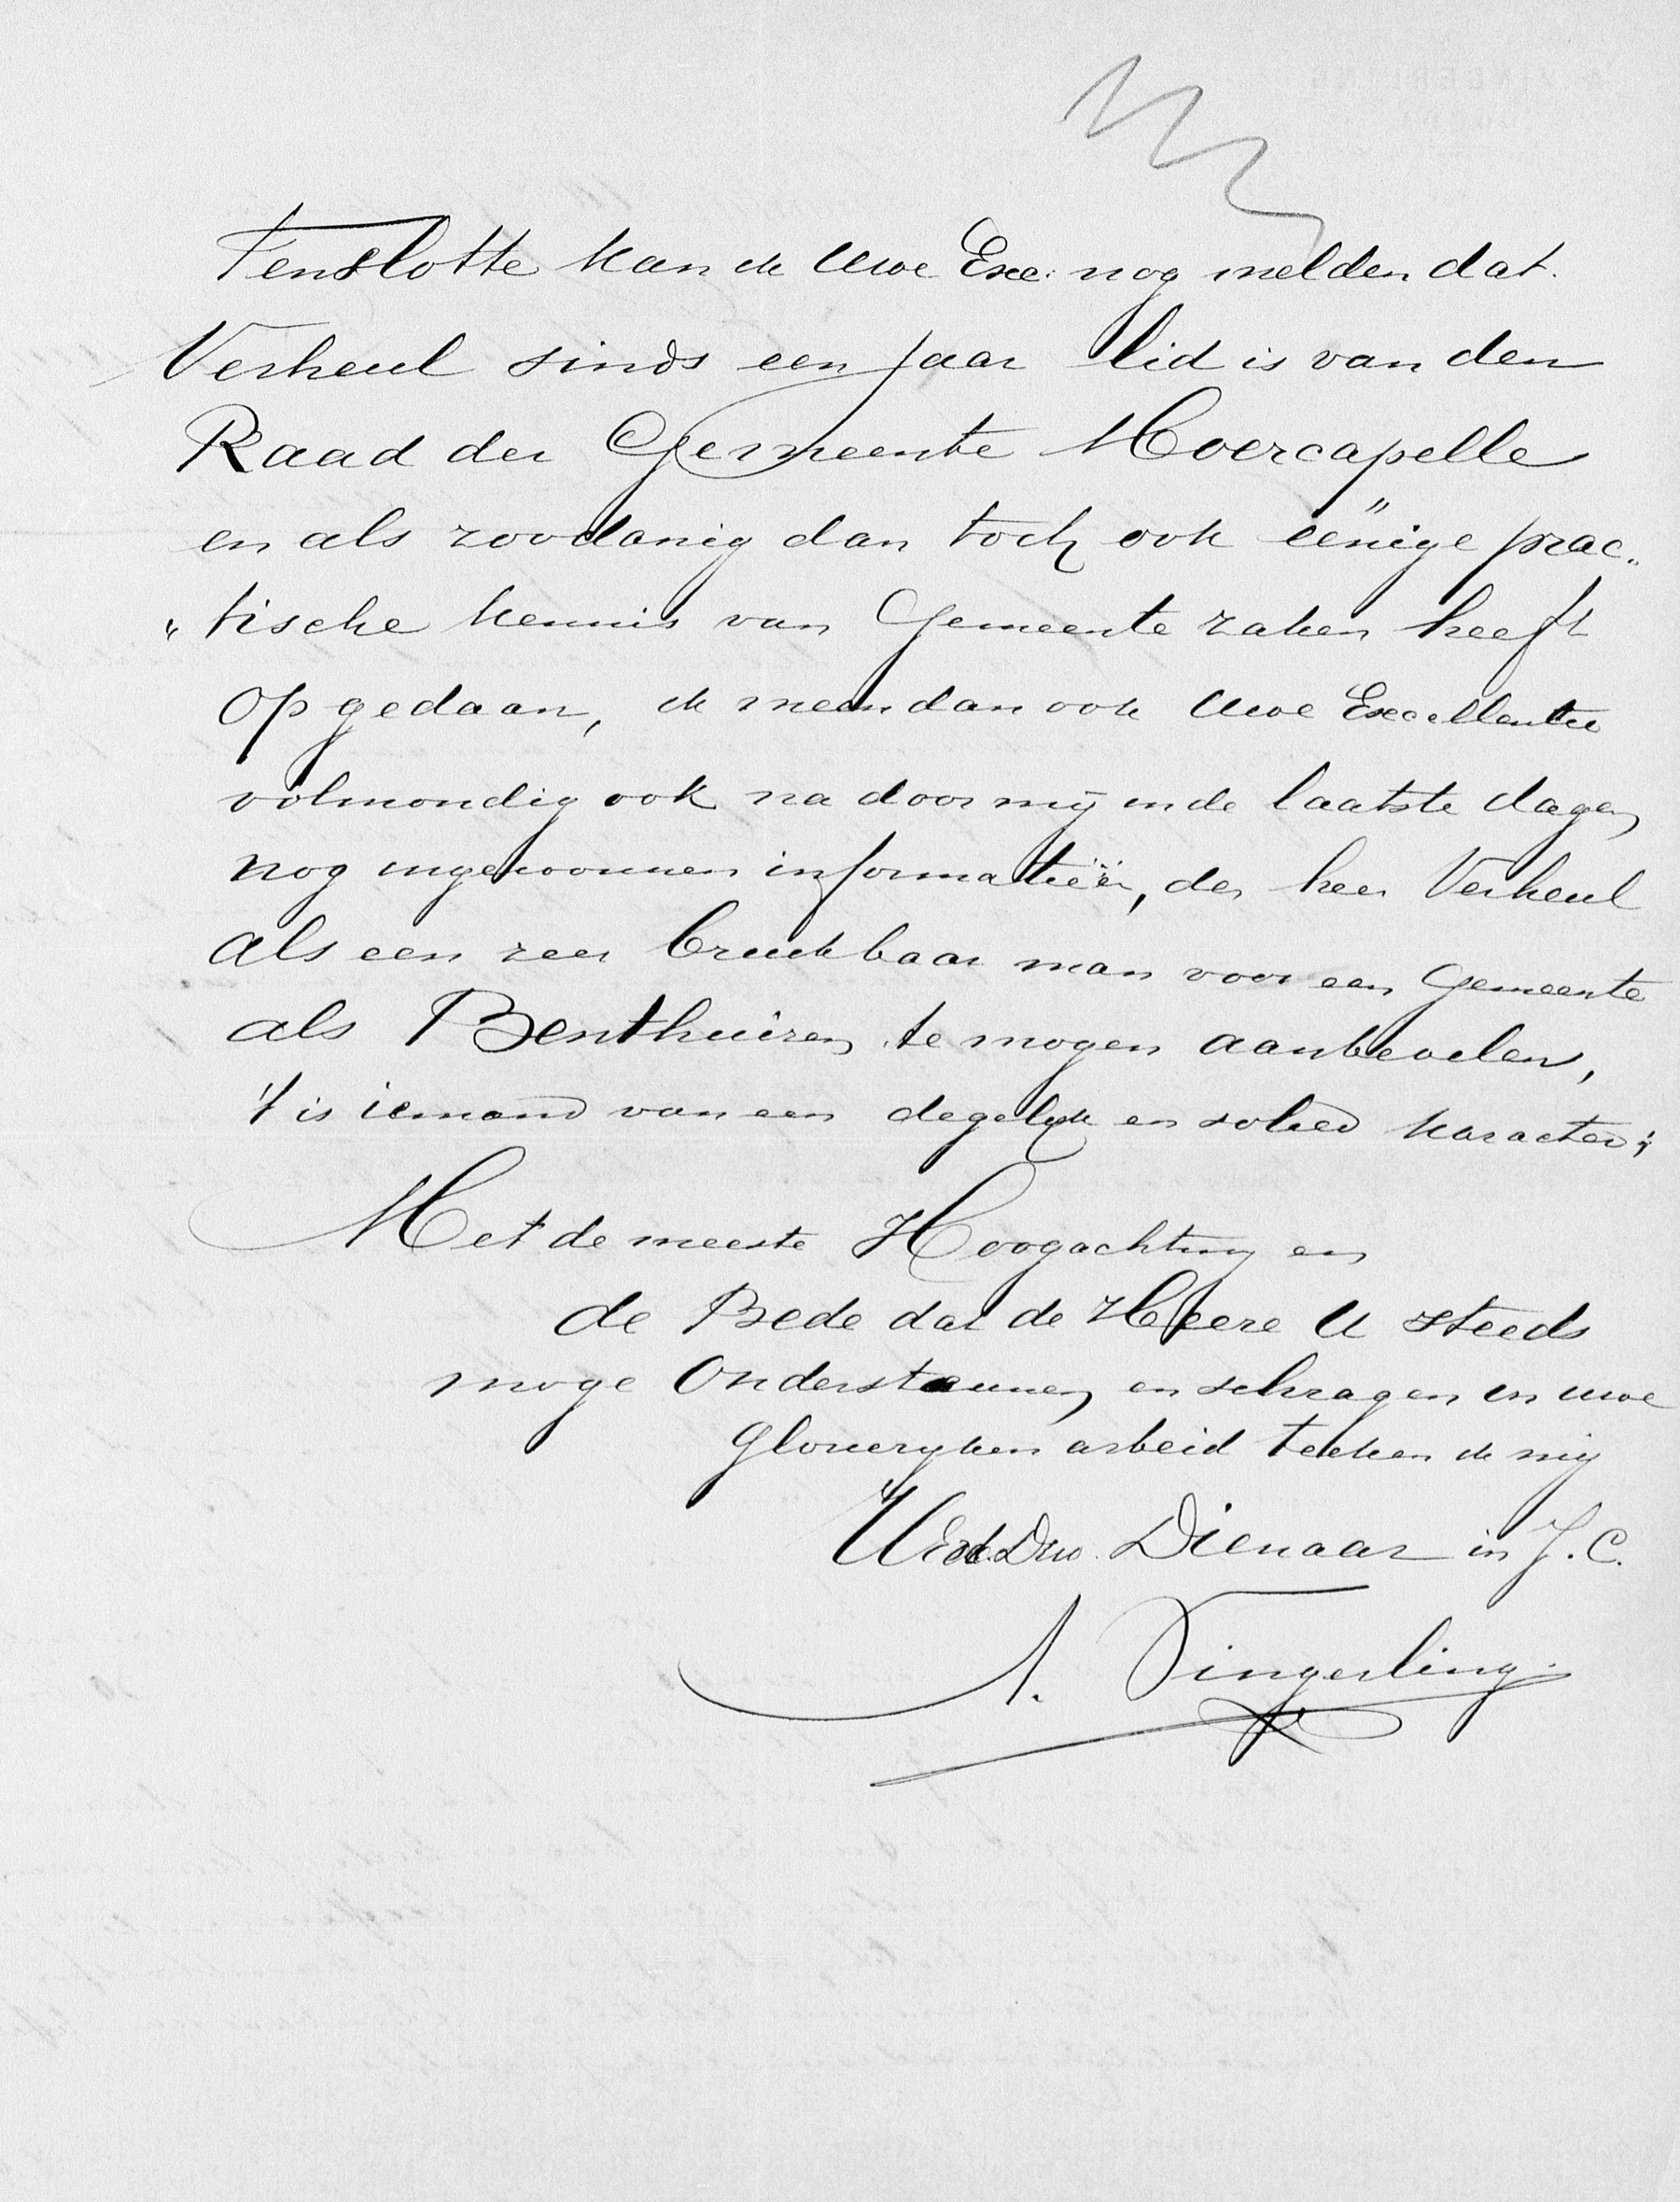 Tenslotte kan ik Uwe Exc. nog melden dat
Verheul sinds een jaar lid is van den
Raad der Gemeente Moercapelle
en als zoodanig dan toch ook eenige prac„
„tische kennis van Gemeente zaken heeft
opgedaan, ik meen dan ook Uwe Excellentie
volmondig ook na door mij in de laatste dagen
nog ingewonnen informatieën, den heer Verheul
als een zeer bruikbaar man voor een Gemeente
als Benthuizen te mogen aanbevelen,
't is iemand van een degelijk en solied karacter;
Met de meeste Hoogachting en
de Bede dat de Heere U steeds
moge Ondersteunen en schragen in uwe
glorierijken arbeid teeken ik mij
UExc. Dw. Dienaar in J. C.
A. Vingerling